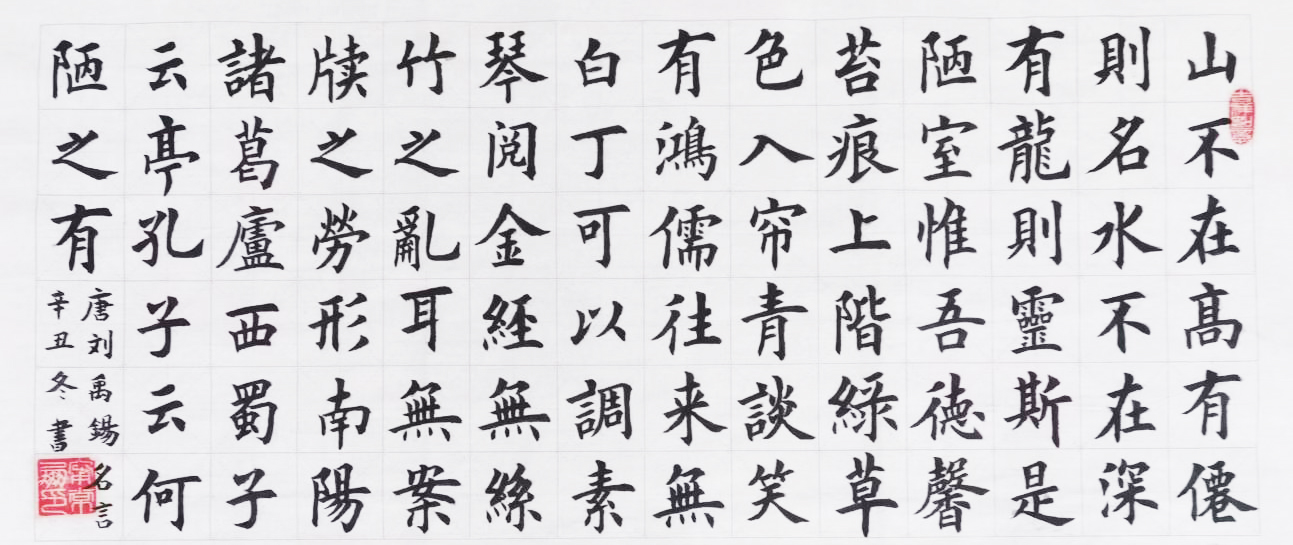 山不在高有僊
則名水不在深
有龍則靈斯是
陋室惟吾德馨
苔痕上階綠草
色入帘青談笑
有鴻儒往来無
白丁可以調素
琴閱金經無絲
竹之亂耳無案
牍之勞形南陽
諸葛廬西蜀子
云亭孔子云何
陋之有
唐刘禹錫名言
辛丑冬書